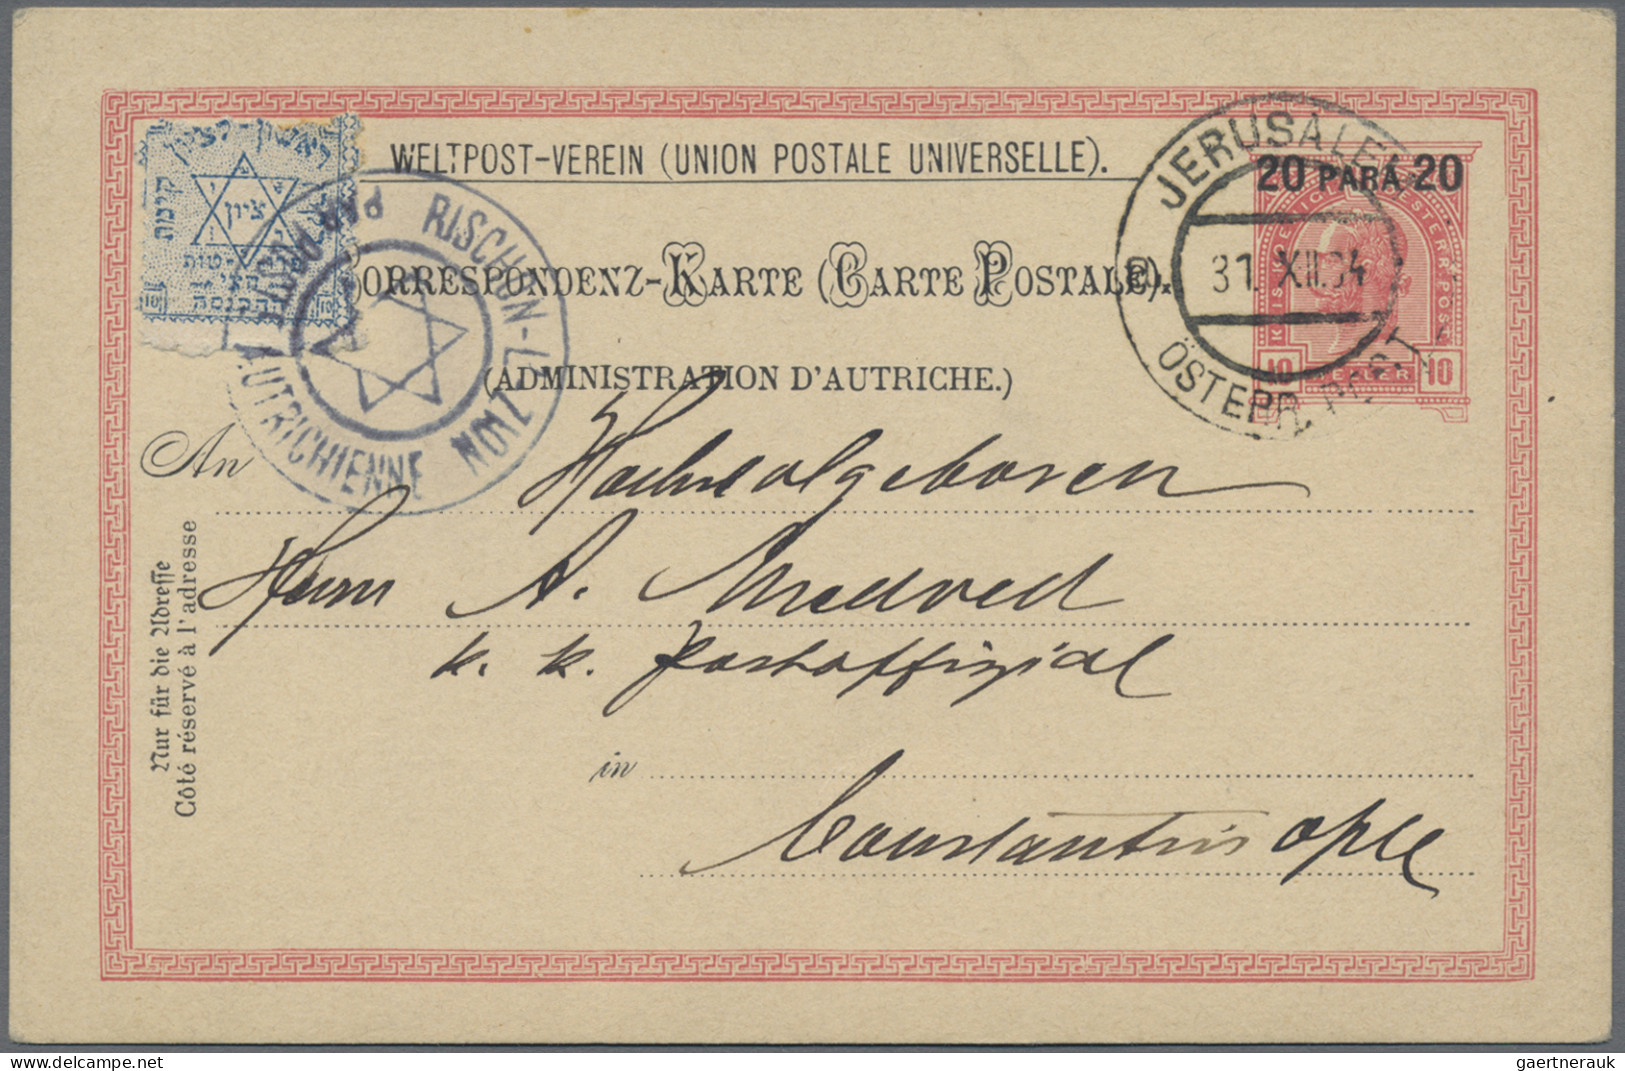 ראשון-לציון
ציון
קימת
WELTPOST-VEREIN (UNION POSTALE UNIVERSELLE).
CORRESPONDENZ-KARTE (CARTE POSTALE).
(ADMINISTRATION D'AUTRICHE.)
RISCHON-LE-ZION
PAR POSTE AUTRICHIENNE
JERUSALEM
31. XII.04
ÖSTERR. POST
20 PARA 20
10 10
An Hochwolgeboren
Herrn A. Medved
k. k. Postoffizial
in
Constantinople
Nur für die Adresse
Côté réservé à l'adresse
gaertnerauk